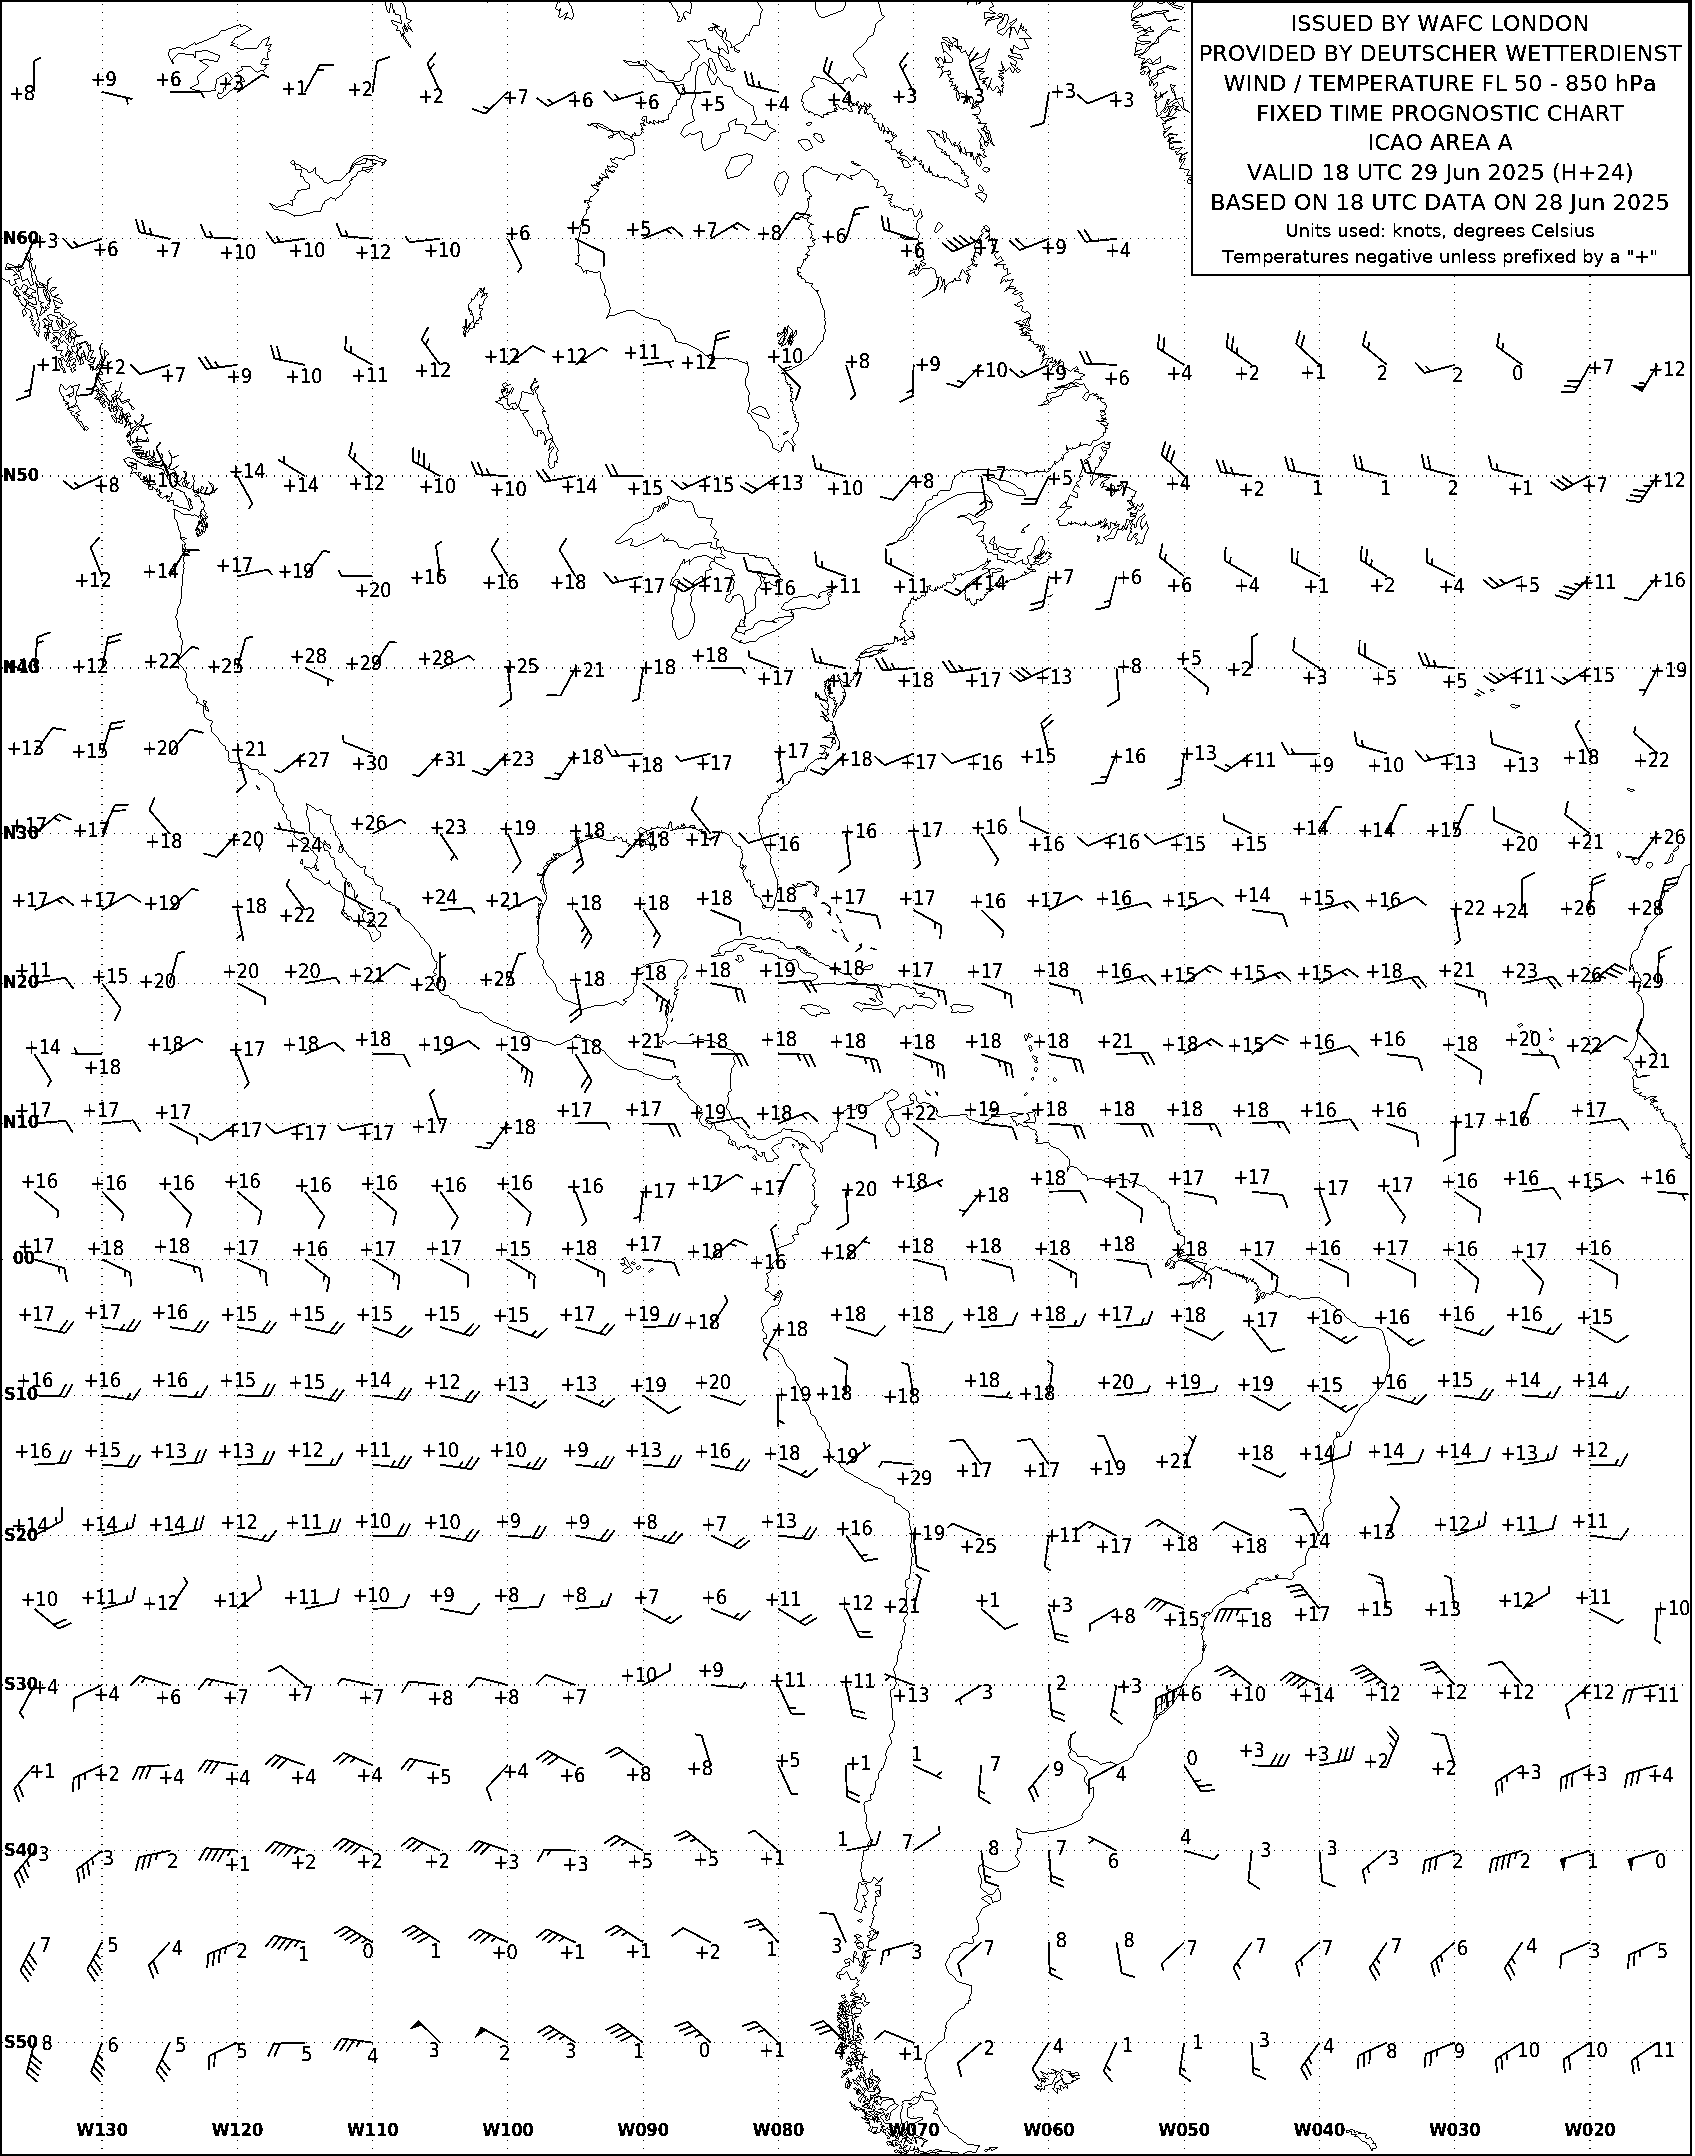 ISSUED BY WAFC LONDON
PROVIDED BY DEUTSCHER WETTERDIENST
WIND / TEMPERATURE FL 50 - 850 hPa
FIXED TIME PROGNOSTIC CHART
ICAO AREA A
VALID 18 UTC 29 Jun 2025 (H+24)
BASED ON 18 UTC DATA ON 28 Jun 2025
Units used: knots, degrees Celsius
Temperatures negative unless prefixed by a "+"
+8 +9 +6 +3 +1 +2 +2 +7 +6 +6 +5 +4 +4 +3 +3 +3 +3
N60 +3 +6 +7 +10 +10 +12 +10 +6 +5 +5 +7 +8 +6 +6 +7 +9 +4
+1 +2 +7 +9 +10 +11 +12 +12 +12 +11 +12 +10 +8 +9 +10 +9 +6 +4 +2 +1 2 2 0 +7 +12
N50 +8 +10 +14 +14 +12 +10 +10 +14 +15 +15 +13 +10 +8 +7 +5 +7 +4 +2 1 1 2 +1 +7 +12
+12 +14 +17 +19 +20 +16 +16 +18 +17 +17 +16 +11 +11 +14 +7 +6 +6 +4 +1 +2 +4 +5 +11 +16
+12 +22 +25 +28 +29 +28 +25 +21 +18 +18 +17 +17 +18 +17 +13 +8 +5 +2 +3 +5 +5 +11 +15 +19
+13 +15 +20 +21 +27 +30 +31 +23 +18 +18 +17 +17 +18 +17 +16 +15 +16 +13 +11 +9 +10 +13 +13 +18 +22
N30 +17 +17 +18 +20 +24 +26 +23 +19 +18 +18 +17 +16 +16 +17 +16 +16 +16 +15 +15 +14 +14 +15 +20 +21 +26
+17 +17 +19 +18 +22 +22 +24 +21 +18 +18 +18 +18 +17 +17 +16 +17 +16 +15 +14 +15 +16 +22 +24 +26 +28
N20 +11 +15 +20 +20 +20 +21 +20 +25 +18 +18 +18 +19 +18 +17 +17 +18 +16 +15 +15 +15 +18 +21 +23 +26 +29
+14 +18 +18 +17 +18 +18 +19 +19 +18 +21 +18 +18 +18 +18 +18 +18 +21 +18 +15 +16 +16 +18 +20 +22 +21
N10 +17 +17 +17 +17 +17 +17 +17 +18 +17 +17 +19 +18 +19 +22 +19 +18 +18 +18 +18 +16 +16 +17 +16 +17
+16 +16 +16 +16 +16 +16 +16 +16 +16 +17 +17 +17 +20 +18 +18 +18 +17 +17 +17 +17 +17 +16 +16 +15 +16
00 +17 +18 +18 +17 +16 +17 +17 +15 +18 +17 +18 +16 +18 +18 +18 +18 +18 +18 +17 +16 +17 +16 +17 +16
+17 +17 +16 +15 +15 +15 +15 +15 +17 +19 +18 +18 +18 +18 +18 +18 +17 +18 +17 +16 +16 +16 +16 +15
S10 +16 +16 +16 +15 +15 +14 +12 +13 +13 +19 +20 +19 +18 +18 +18 +18 +20 +19 +19 +15 +16 +15 +14 +14
+16 +15 +13 +13 +12 +11 +10 +10 +9 +13 +16 +18 +19 +29 +17 +17 +19 +21 +18 +14 +14 +14 +13 +12
S20 +14 +14 +14 +12 +11 +10 +10 +9 +9 +8 +7 +13 +16 +19 +25 +11 +17 +18 +18 +14 +13 +12 +11 +11
+10 +11 +12 +11 +11 +10 +9 +8 +8 +7 +6 +11 +12 +21 +1 +3 +8 +15 +18 +17 +15 +13 +12 +11 +10
S30 +4 +4 +6 +7 +7 +7 +8 +8 +7 +10 +9 +11 +11 +13 3 2 +3 +6 +10 +14 +12 +12 +12 +12 +11
+1 +2 +4 +4 +4 +4 +5 +4 +6 +8 +8 +5 +1 1 7 9 4 0 +3 +3 +2 +2 +3 +3 +4
S40 3 3 2 +1 +2 +2 +2 +3 +3 +5 +5 +1 1 7 8 7 6 4 3 3 3 2 2 1 0
7 5 4 2 1 0 1 +0 +1 +1 +2 1 3 3 7 8 8 7 7 7 7 6 4 3 5
S50 8 6 5 5 5 4 3 2 3 1 0 +1 4 +1 2 4 1 1 3 4 8 9 10 10 11
W130 W120 W110 W100 W090 W080 W070 W060 W050 W040 W030 W020